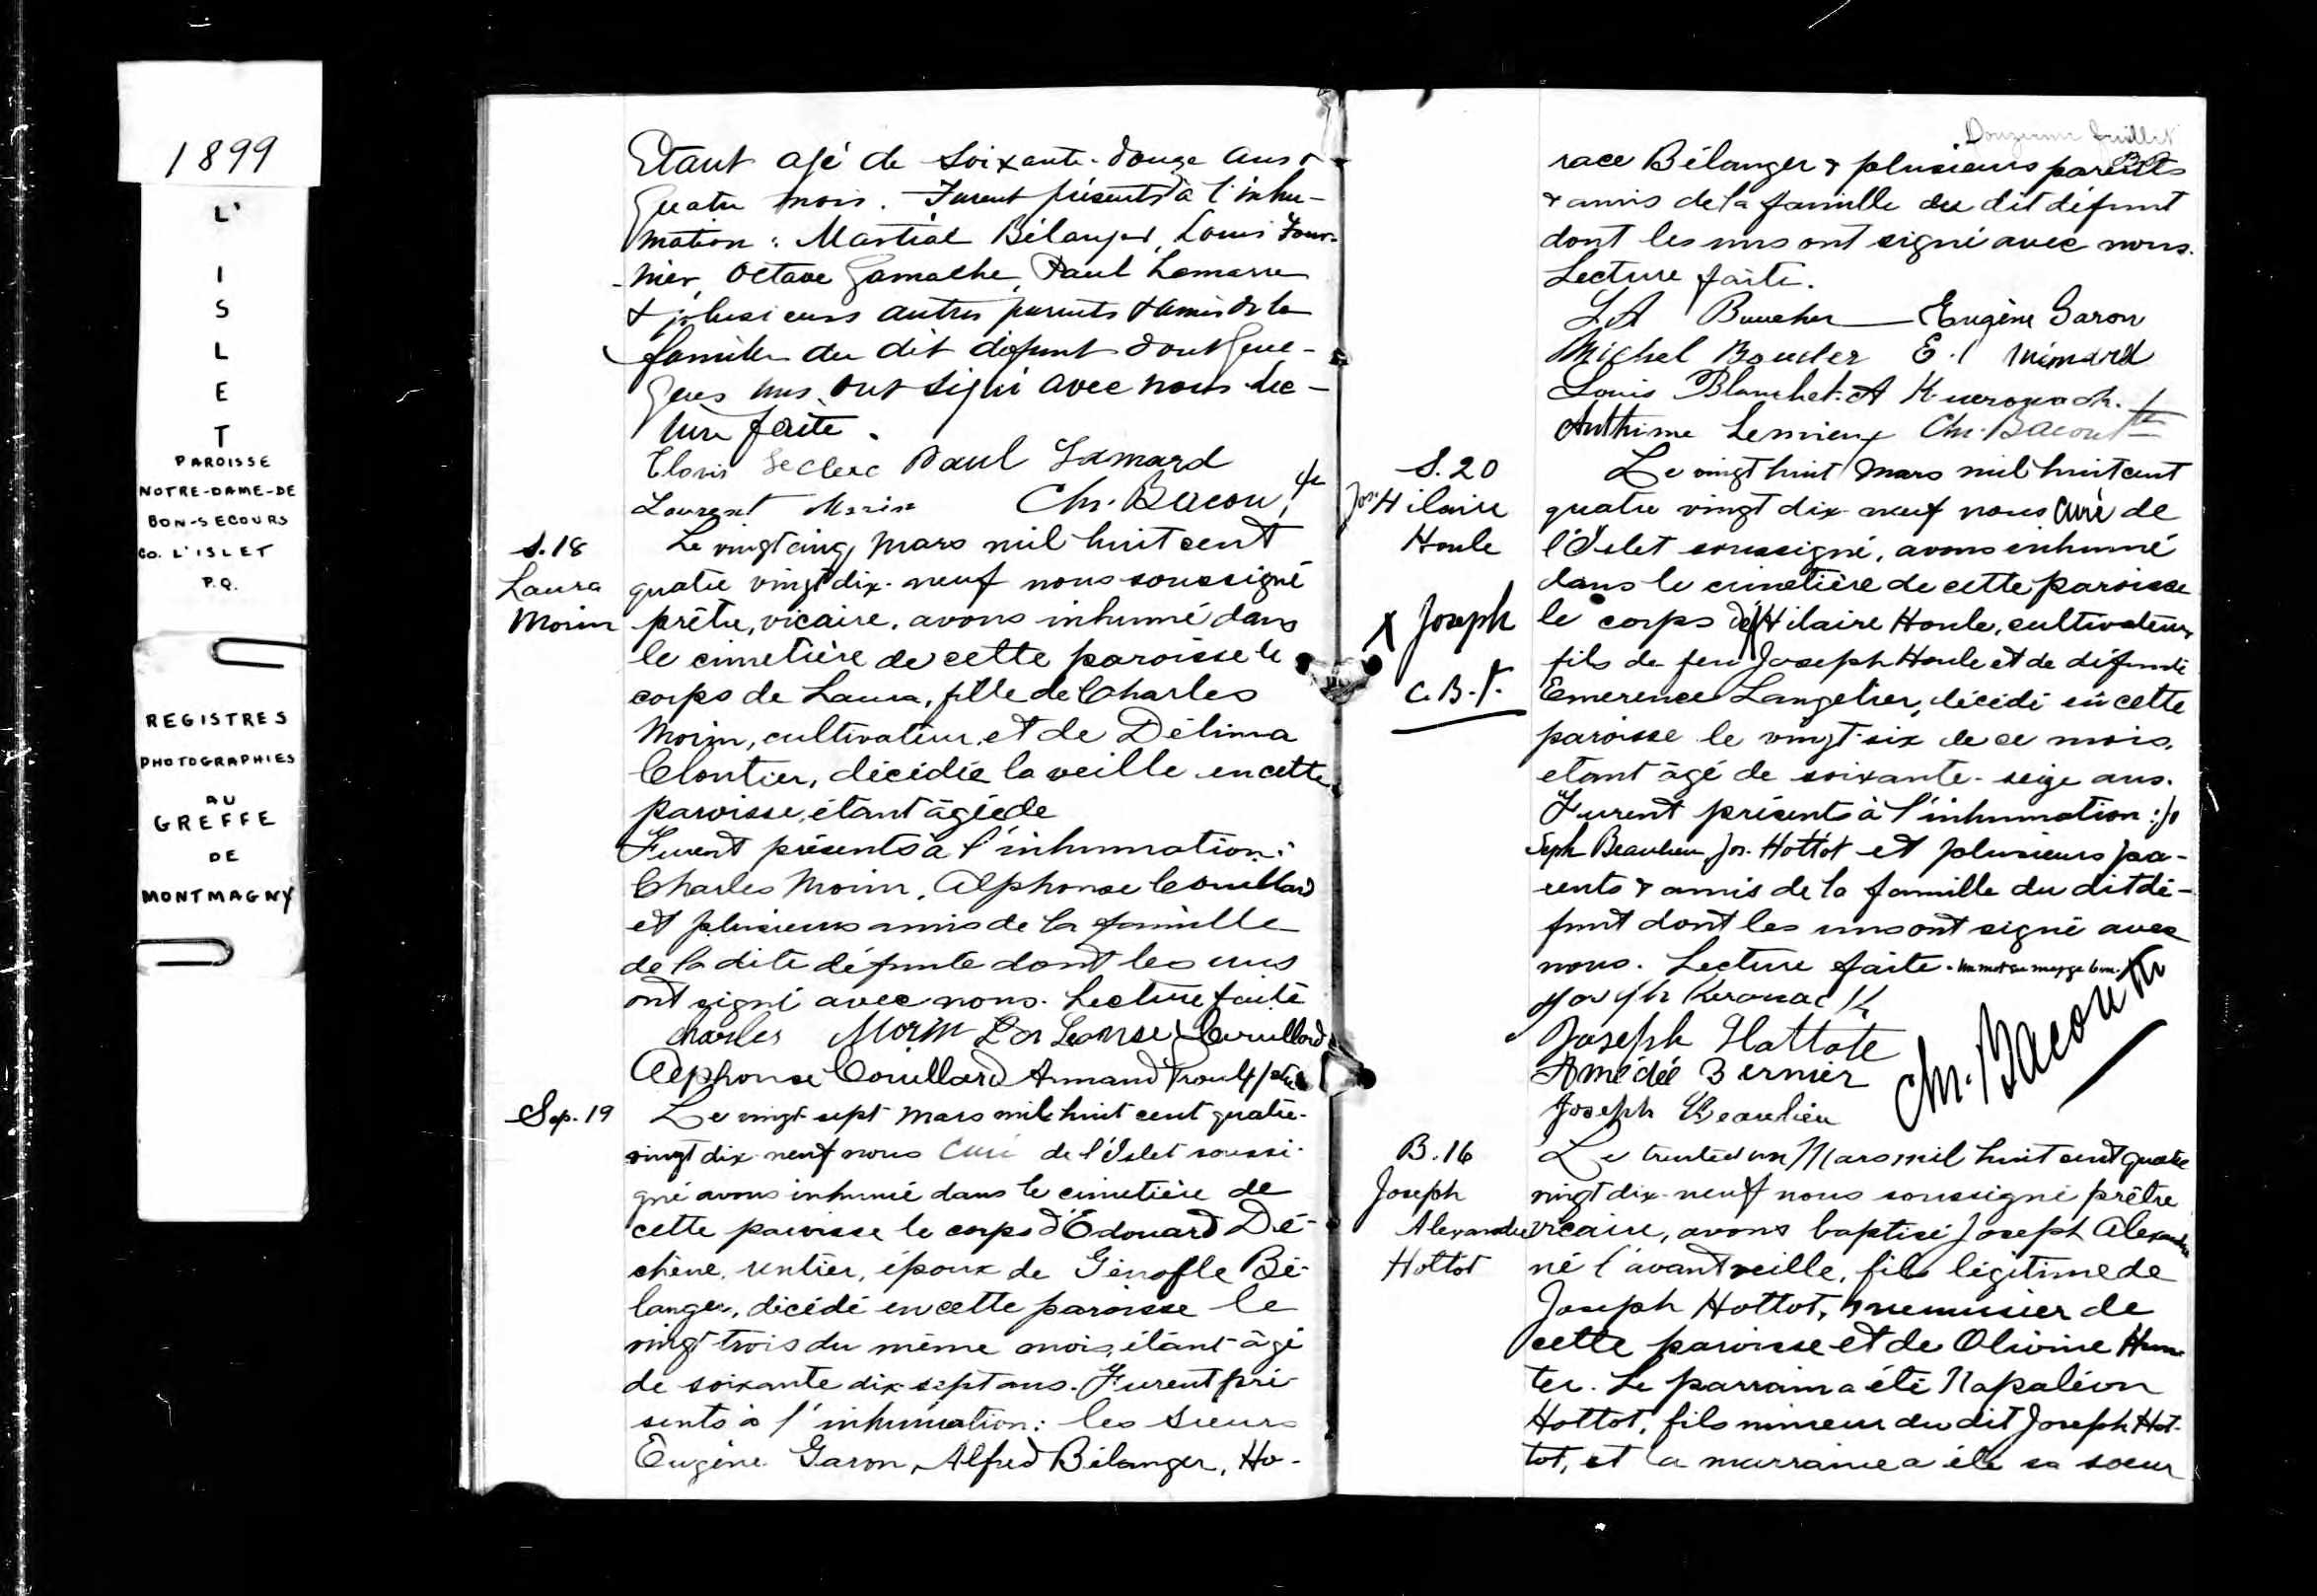 1899
L'
I
S
L
E
T
PAROISSE
NOTRE-DAME-DE
BON-SECOURS
Co. L'ISLET
P.Q.
REGISTRES
PHOTOGRAPHIES
AU
GREFFE
DE
MONTMAGNY
Etant agé de soixante-douze ans &
quatre mois. Furent présents à l'inhu-
mation : Martial Bélanger, Louis Four-
nier, Octave Gamache, Paul Lemarre
& plusieurs autres parents & amis de la
famille du dit défunt dont quel-
ques uns ont signé avec nous Lec-
ture faite.
Elovis Leclerc Paul Lamard
Laurent Morin Ch. Bacon, ptre
S. 18
Laura
Morin
Le vingt cinq Mars mil huit cent
quatre vingt dix-neuf nous soussigné
prêtre, vicaire, avons inhumé dans
le cimetière de cette paroisse le
corps de Laura, fille de Charles
Morin, cultivateur, et de Délima
Cloutier, décédée la veille en cette
paroisse, étant âgée de
Furent présents à l'inhumation :
Charles Morin, Alphonse Couillard
et plusieurs amis de la famille
de la dite défunte dont les uns
ont signé avec nous. Lecture faite
Charles Morin Couillard
Alphonse Couillard Armand Proulx ptre
Sep. 19
Le vingt-sept Mars mil huit cent quatre-
vingt dix-neuf nous curé de l'Islet soussi-
gné avons inhumé dans le cimetière de
cette paroisse le corps d'Edouard Dé-
chène, rentier, époux de Génofle Bé-
langer, décédé en cette paroisse le
vingt-trois du même mois, étant âgé
de soixante dix-sept ans. Furent pré-
sents à l'inhumation : les sieurs
Eugène Garon, Alfred Bélanger, Ho-
Douzième feuillet
race Bélanger & plusieurs parents
& amis de la famille du dit défunt
dont les uns ont signé avec nous.
Lecture faite.
L A Boucher Eugène Garon
Michel Boucler E.
Louis Blanchet A K-uerouach.
Anthime Lemieux Ch. Bacon ptre
S. 20
Jos. Hilaire
Houle
X Joseph
C.B. P.
Le vingt huit Mars mil huit cent
quatre vingt dix-neuf nous curé de
l'Islet soussigné, avons inhumé
dans le cimetière de cette paroisse
le corps de Hilaire Houle, cultivateur,
fils de feu Joseph Houle et de défunte
Emerence Langelier, décédé en cette
paroisse le vingt-six de ce mois,
etant âgé de soixante-seize ans.
Furent présents à l'inhumation : Jo
seph Beaulieu, Jos. Hottot et plusieurs pa-
rents & amis de la famille du dit dé-
funt dont les uns ont signé avec
nous. Lecture faite. Un mot en marge bon.
Joseph Kerouack
Joseph Hattote
Amédée Bernier
Joseph Beaulieu
Ch. Bacon ptre
B. 16
Joseph
Alexandre
Hottot
Le trente et un Mars mil huit cent quatre
vingt dix-neuf nous soussigné prêtre
vicaire, avons baptisé Joseph Alexandre
né l'avant veille, fils légitime de
Joseph Hottot, menuisier de
cette paroisse et de Olivine Hun-
ter. Le parrain a été Napoléon
Hottot, fils mineur du dit Joseph Hot-
tot, et la marraine a été sa soeur